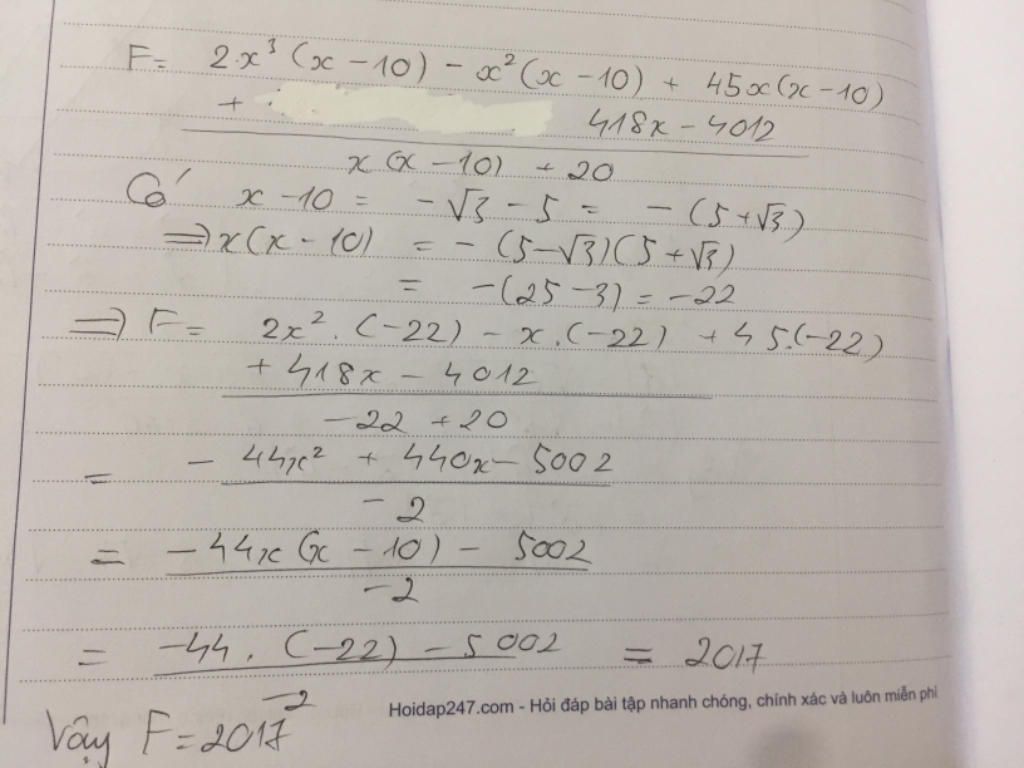 F = 2.x³(x - 10) - x²(x - 10) + 45x(x - 10)
+ 418x - 4012
x(x - 10) + 20
Có x - 10 = -√3 - 5 = -(5 + √3)
=> x(x - 10) = -(5 - √3)(5 + √3)
= -(25 - 3) = -22
=> F = 2x².(-22) - x.(-22) + 45.(-22)
+ 418x - 4012
-22 + 20
= -44x² + 440x - 5002
-2
= -44x(x - 10) - 5002
-2
= -44.(-22) - 5002 = 2017
-2
Hoidap247.com - Hỏi đáp bài tập nhanh chóng, chính xác và luôn miễn phí
Vậy F = 2017